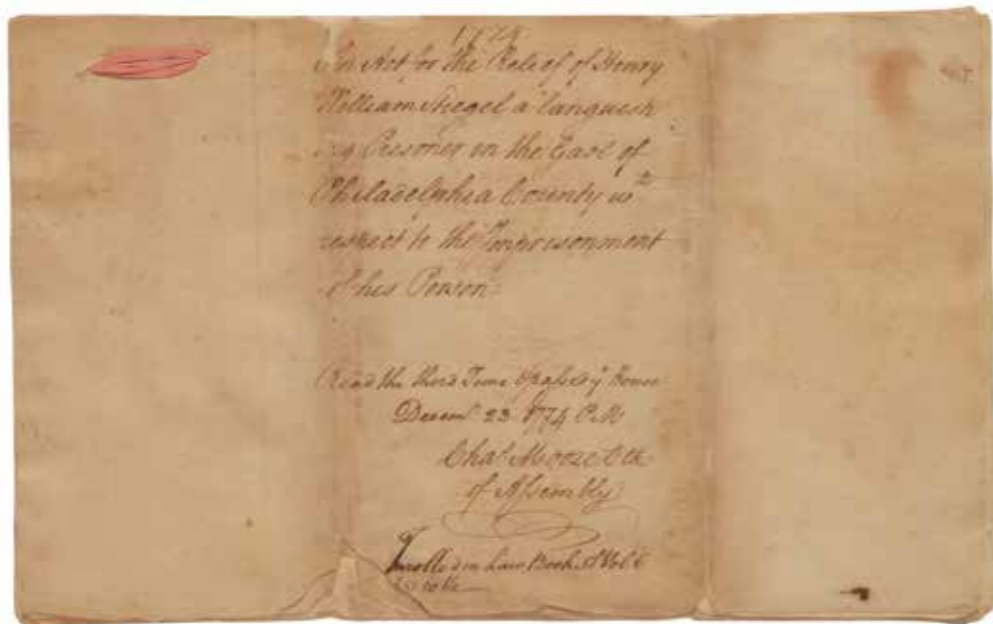 1774
An Act for the Relief of Henry
William Stiegel a languish
ing Prisoner in the Gaol of
Philadelphia County wth
respect to the Imprisonment
of his Person
Read the third Time & passed ye House
Decemr 23 1774 P.M
Chas Moore Clk
of Assembly
Inrolled in Law Book A Vol 6